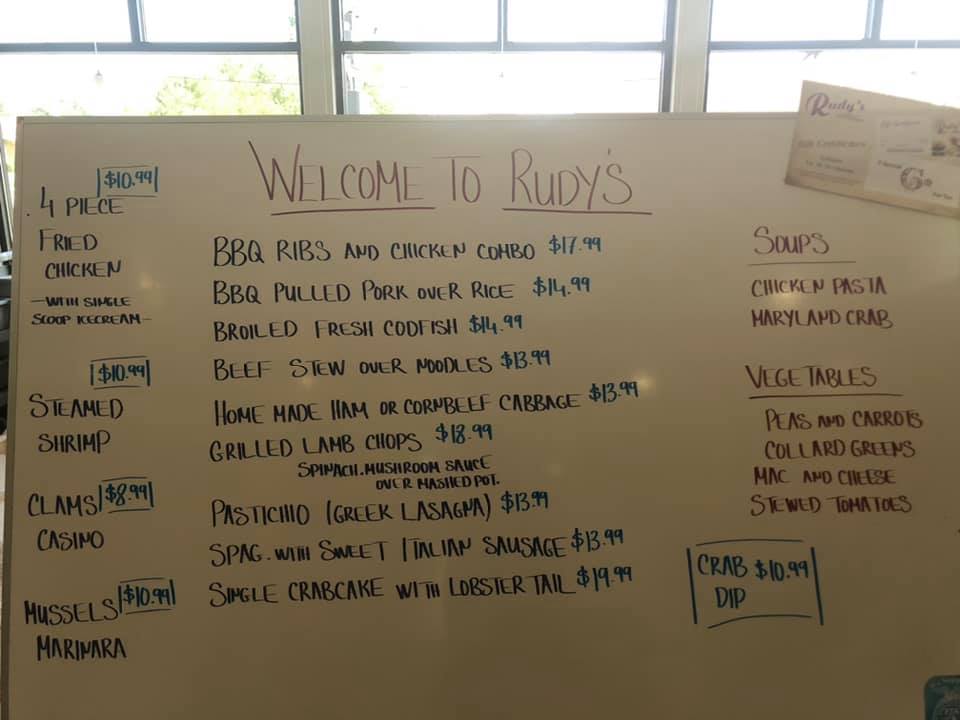 WELCOME TO RUDY'S
$10.99
4 PIECE
FRIED
CHICKEN
—WITH SINGLE
SCOOP ICECREAM—
$10.99
STEAMED
SHRIMP
CLAMS $8.99
CASINO
MUSSELS $10.99
MARINARA
BBQ RIBS AND CHICKEN COMBO $17.99
BBQ PULLED PORK OVER RICE $14.99
BROILED FRESH CODFISH $14.99
BEEF STEW OVER NOODLES $13.99
HOME MADE HAM OR CORNBEEF CABBAGE $13.99
GRILLED LAMB CHOPS $18.99
SPINACH.MUSHROOM SAUCE
OVER MASHED POT.
PASTICHIO (GREEK LASAGNA) $13.99
SPAG. WITH SWEET ITALIAN SAUSAGE $13.99
SINGLE CRABCAKE WITH LOBSTER TAIL $19.99
Rudy's
Gift Certificates
SOUPS
CHICKEN PASTA
MARYLAND CRAB
VEGETABLES
PEAS AND CARROTS
COLLARD GREENS
MAC AND CHEESE
STEWED TOMATOES
CRAB $10.99
DIP